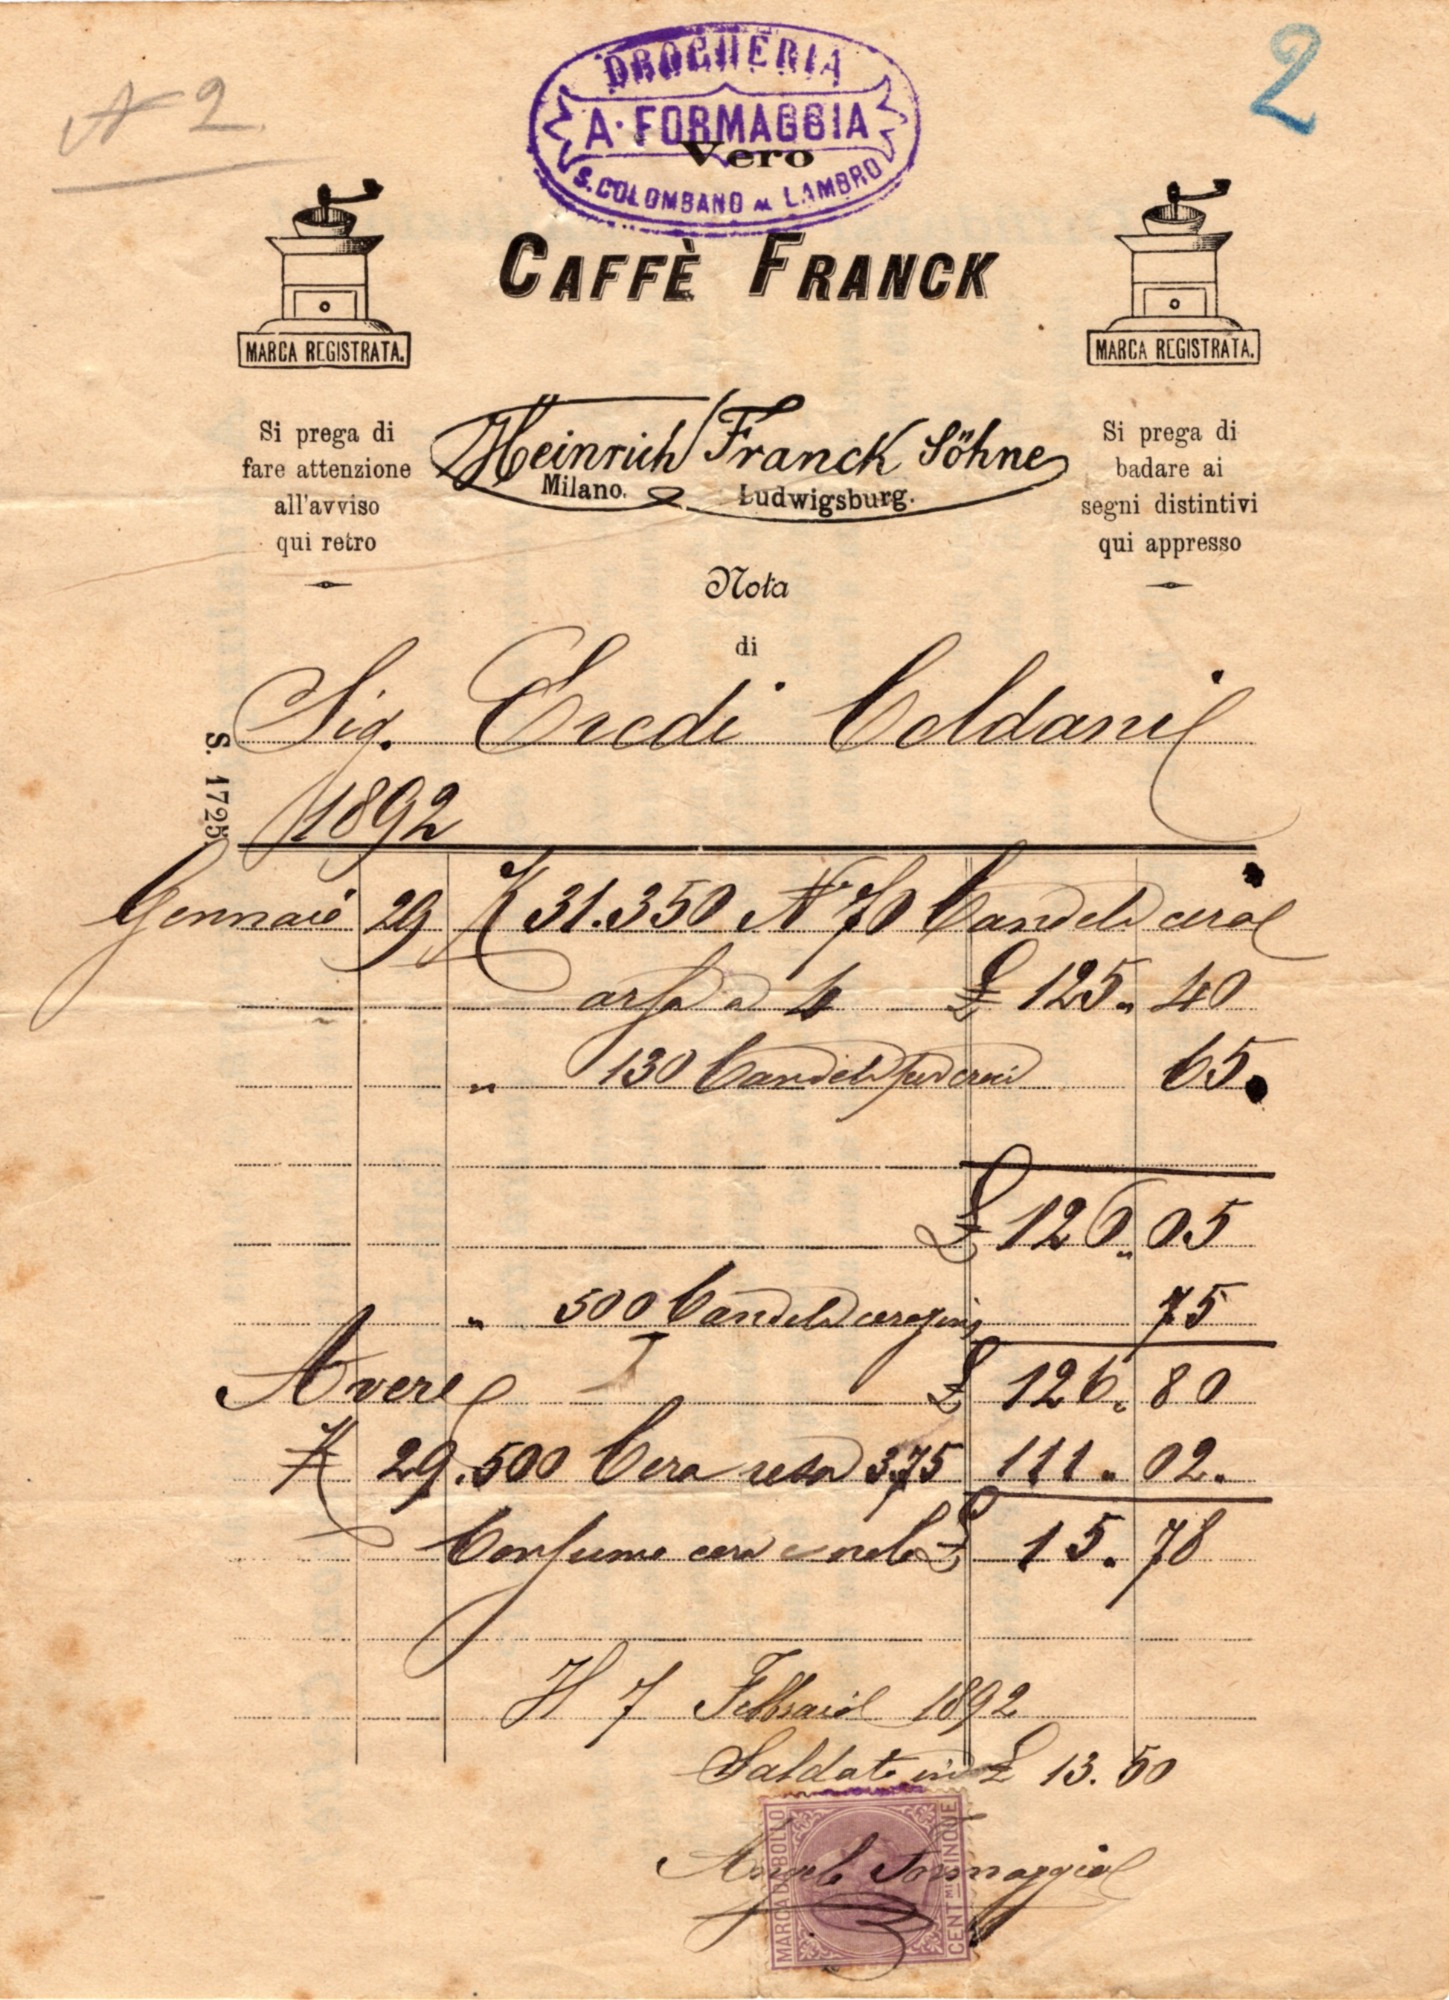 N 2
2
DROGHERIA
A. FORMAGGIA
S. COLOMBANO AL LAMBRO
Vero
CAFFÈ FRANCK
MARCA REGISTRATA.
MARCA REGISTRATA.
Si prega di
fare attenzione
all'avviso
qui retro
Heinrich Franck Söhne
Milano. Ludwigsburg.
Si prega di
badare ai
segni distintivi
qui appresso
Nota
di
Sig. Eredi Coldani
S. 1725
1892
Gennaio 29 K 31.350 N 70 Candele cera
arsa a 4 £ 125. 40
" 130 Candele 65.
£ 126. 05
" 500 Candele 75
Avere £ 126. 80
K 29.500 Cera resa 3.75 111. 02.
Consumo cera £ 15. 78
7 Febbraio 1892
Saldato in £ 13.50
Angelo Formaggia
MARCA DA BOLLO
CENTMI CINQUE